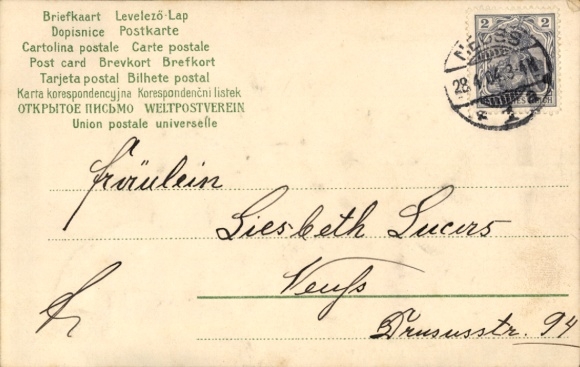 Briefkaart Levelező-Lap
Dopisnice Postkarte
Cartolina postale Carte postale
Post card Brevkort Brefkort
Tarjeta postal Bilhete postal
Karta korespondencyjna Korespondenční listek
ОТКРЫТОЕ ПИСЬМО WELTPOSTVEREIN
Union postale universelle
2 2
NEUSS
28.4.04.3-4N
* 1 a
Fräulein
Liesbeth Lucas
Neuſs
Drususstr. 94